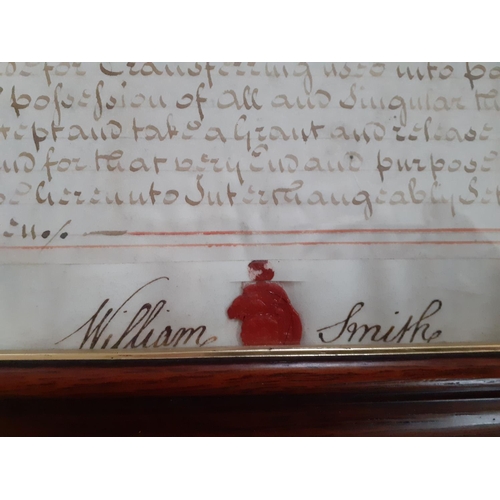 for Transferring uses into
possession of all and Singular
and take a Grant and release
for that very End and purpose
hereunto Interchangeably
William Smith